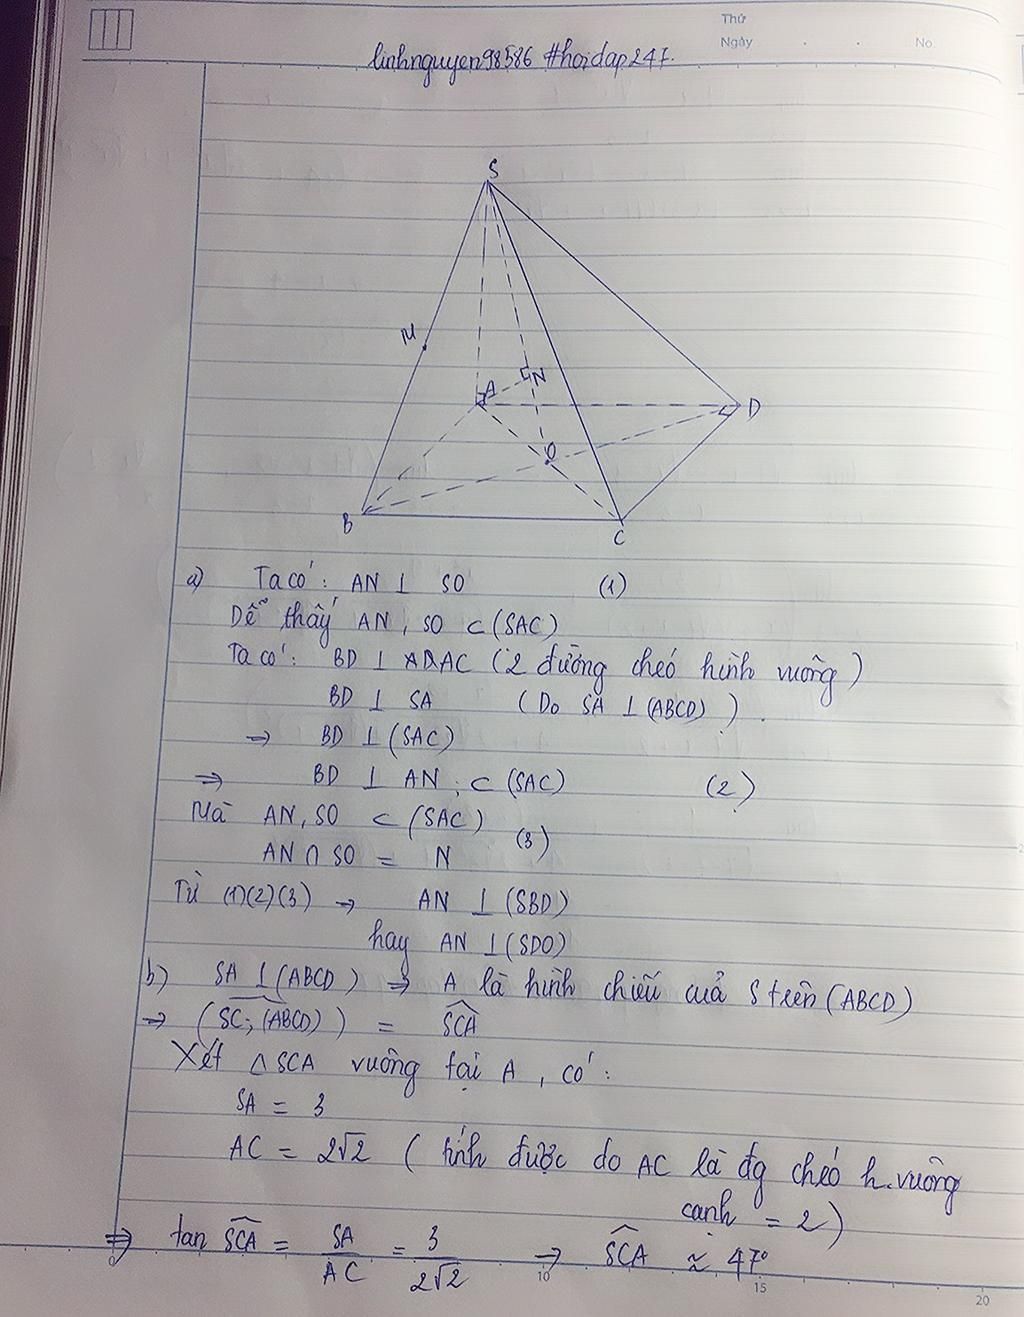 Thứ
Ngày
No.
linhnguyen98586 #hoidap247.
S
M
A
N
D
O
B
C
a) Ta có: AN ⊥ SO (1)
Dễ thấy AN, SO ⊂ (SAC)
Ta có: BD ⊥ AC (2 đường chéo hình vuông)
BD ⊥ SA (Do SA ⊥ (ABCD)).
⇒ BD ⊥ (SAC)
⇒ BD ⊥ AN ; ⊂ (SAC) (2)
Mà AN, SO ⊂ (SAC)
(3)
AN ∩ SO = N
Từ (1)(2)(3) ⇒ AN ⊥ (SBD)
hay AN ⊥ (SDO)
b) SA ⊥ (ABCD) ⇒ A là hình chiếu của S trên (ABCD)
⇒ (SC; (ABCD)) = SCA
Xét △SCA vuông tại A, có:
SA = 3
AC = 2√2 (tính được do AC là đg chéo h.vuông
cạnh = 2)
⇒ tan SCA = SA/AC = 3/2√2 ⇒ SCA ≈ 47°
0 10 15 20